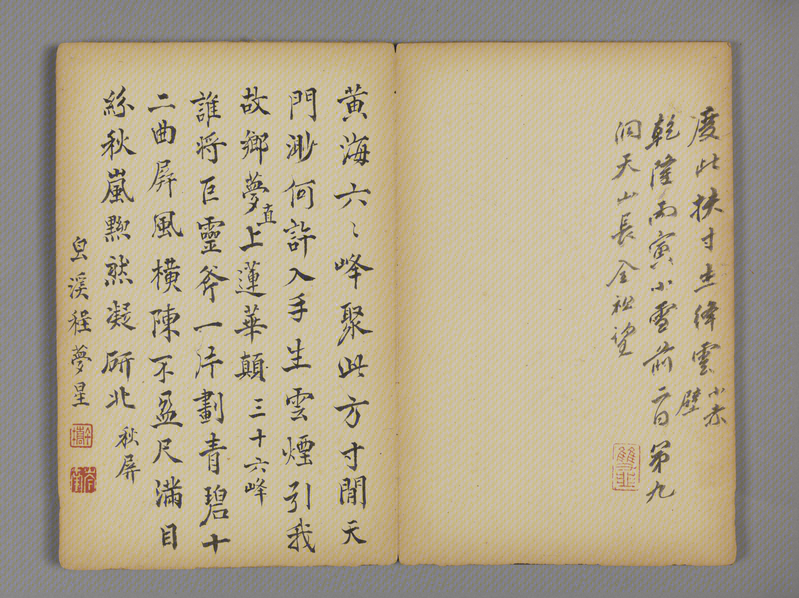 度此扶寸土絳雲小赤壁
乾隆丙寅小雪前二日第九
洞天山長全祖望
黃海六〻峰聚此方寸間天
門渺何許入手生雲煙引我
故鄉夢直上蓮華顛三十六峰
誰將巨靈斧一片劃青碧十
二曲屏風橫陳不盈尺滿目
紛秋嵐黙然凝研北秋屏
臯溪程夢星